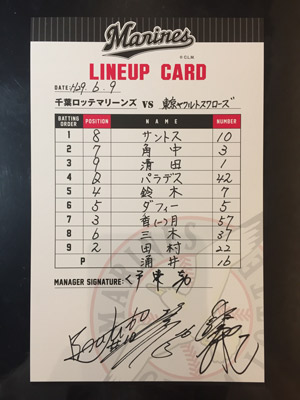 Marines
LINEUP CARD
DATE: H29. 6. 9
千葉ロッテマリーンズ VS 東京ヤクルトスワローズ
BATTING ORDER POSITION NAME NUMBER
1 8 サントス 10
2 7 角中 3
3 9 清田 1
4 パラデス 42
5 4 鈴木 7
6 ダフィー 5
7 3 香(一)月 57
8 6 三木 37
9 2 田村 22
P 涌井 16
MANAGER SIGNATURE: 伊東勤